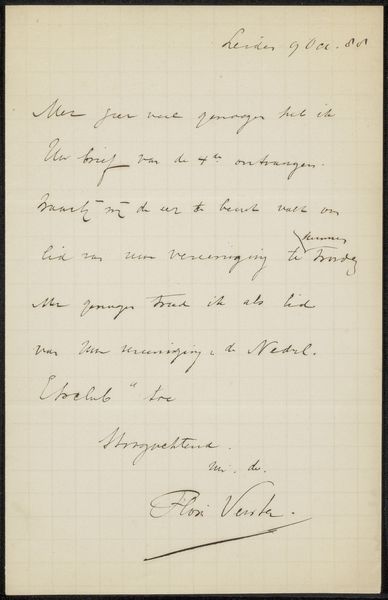 Leiden 9 Oct. 88
Met zeer veel genoegen heb ik
Uw brief van de 4de ontvangen.
waarbij mij de eer te beurt valt om
lid van uwe vereeniging te kunnen treden
Met genoegen treed ik als lid
van Uwe vereeniging: de Nederl.
Etsclub" toe
Hoogachtend.
uw. dr.
Floris Verster.